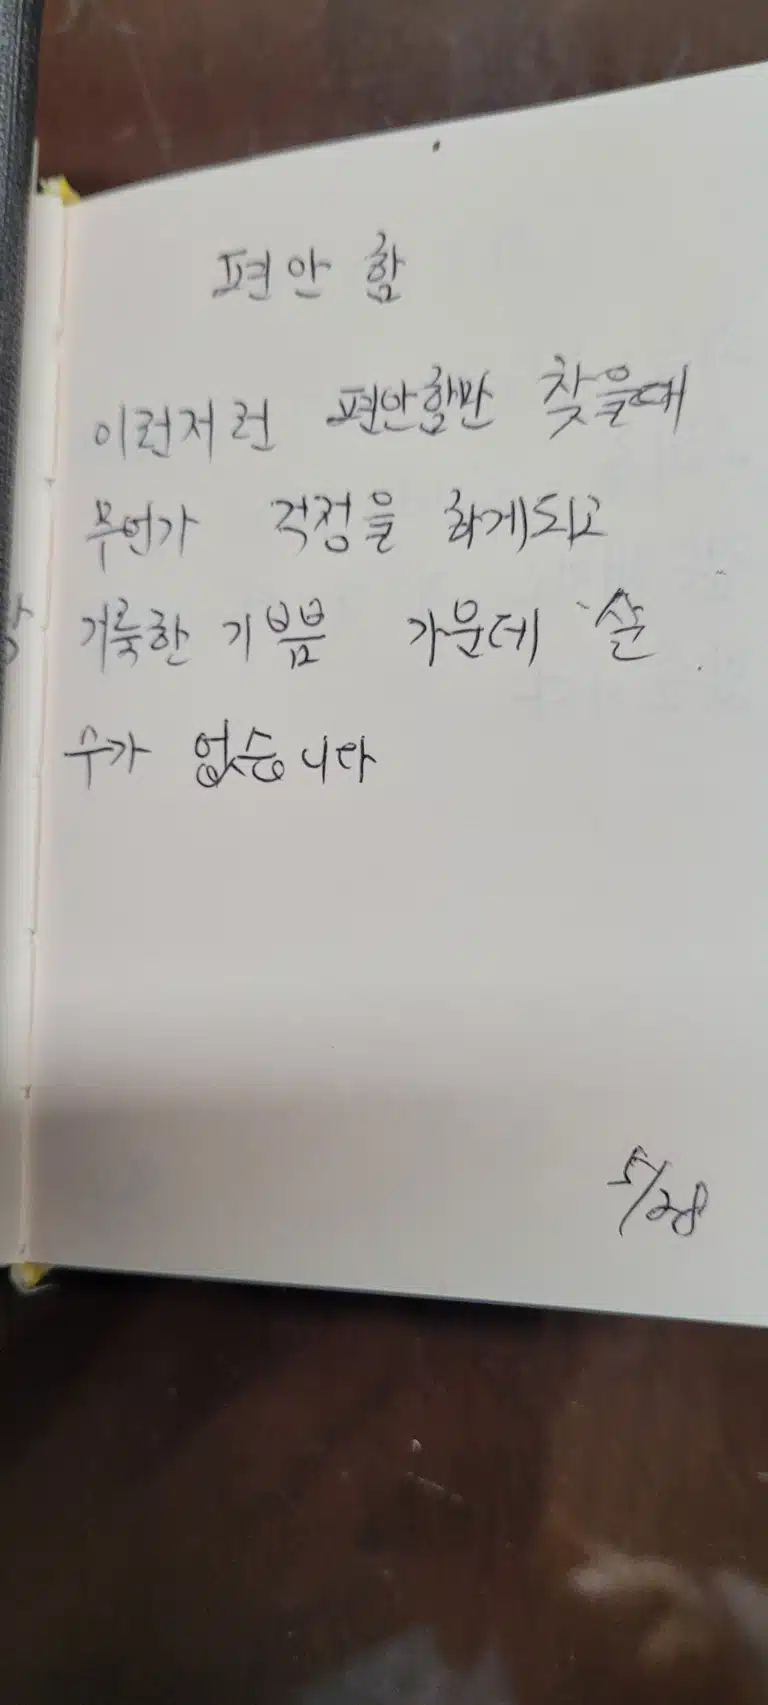 편안함
이런저런 편안함만 찾을때
무언가 걱정을 하게되고
거룩한 기쁨 가운데 살
수가 없습니다
5/28